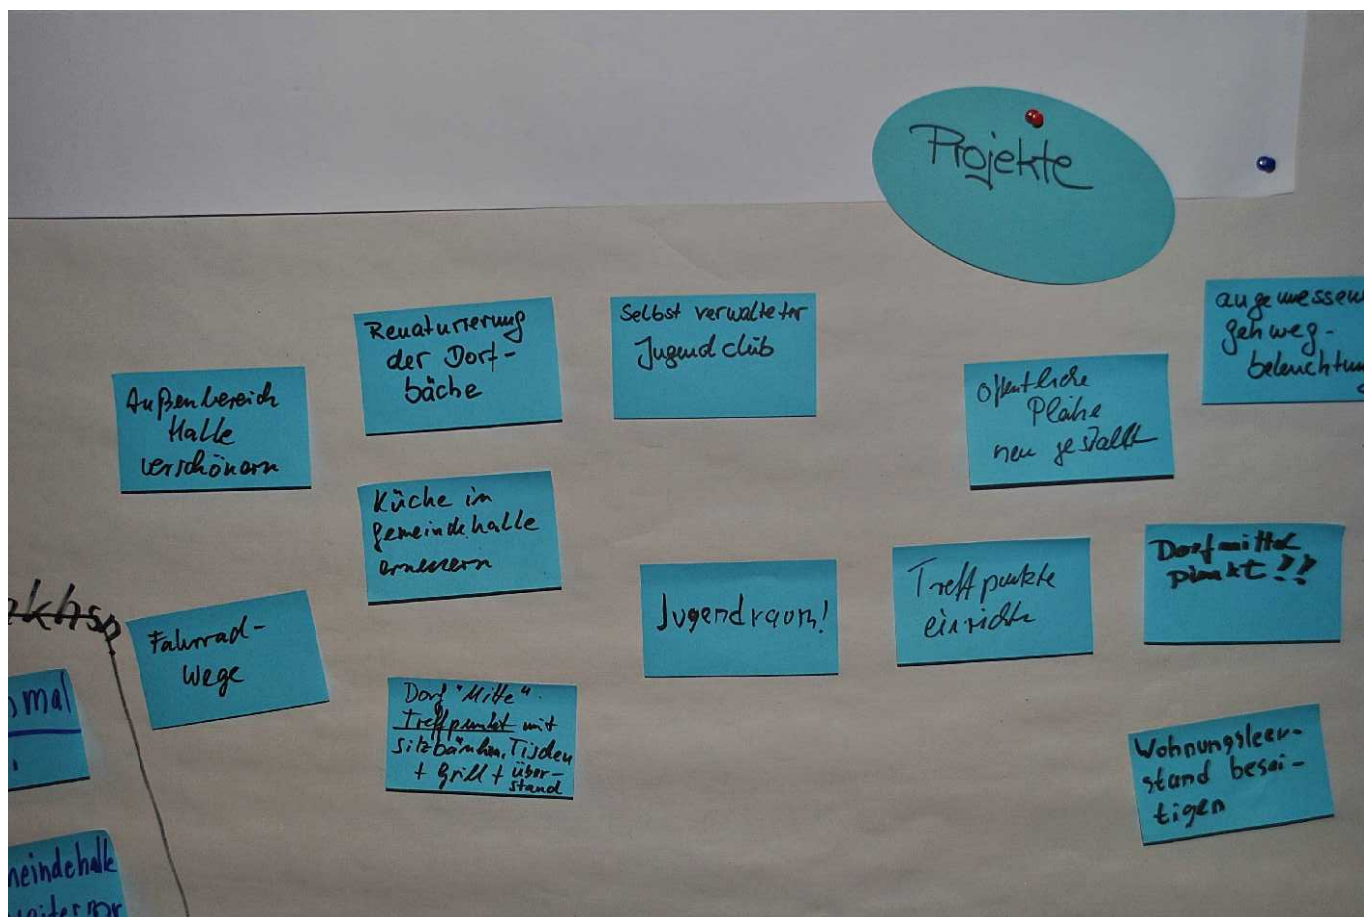 Projekte
Außenbereich
Halle
verschönern
Renaturierung
der Dorf-
bäche
Selbst verwalteter
Jugendclub
öffentliche
Plätze
neu gestallt
angemessen
gehweg-
beleuchtung
Küche in
gemeindehalle
erneuern
Jugendraum!
Treffpunkte
einrichten
Dorfmittel
punkt??
Fahrrad-
Wege
Dorf "Mitte"
Treffpunkt mit
Sitzbänken, Tischen
+ Grill + über-
stand
Wohnungsleer-
stand besei-
tigen
mal
meindehalle